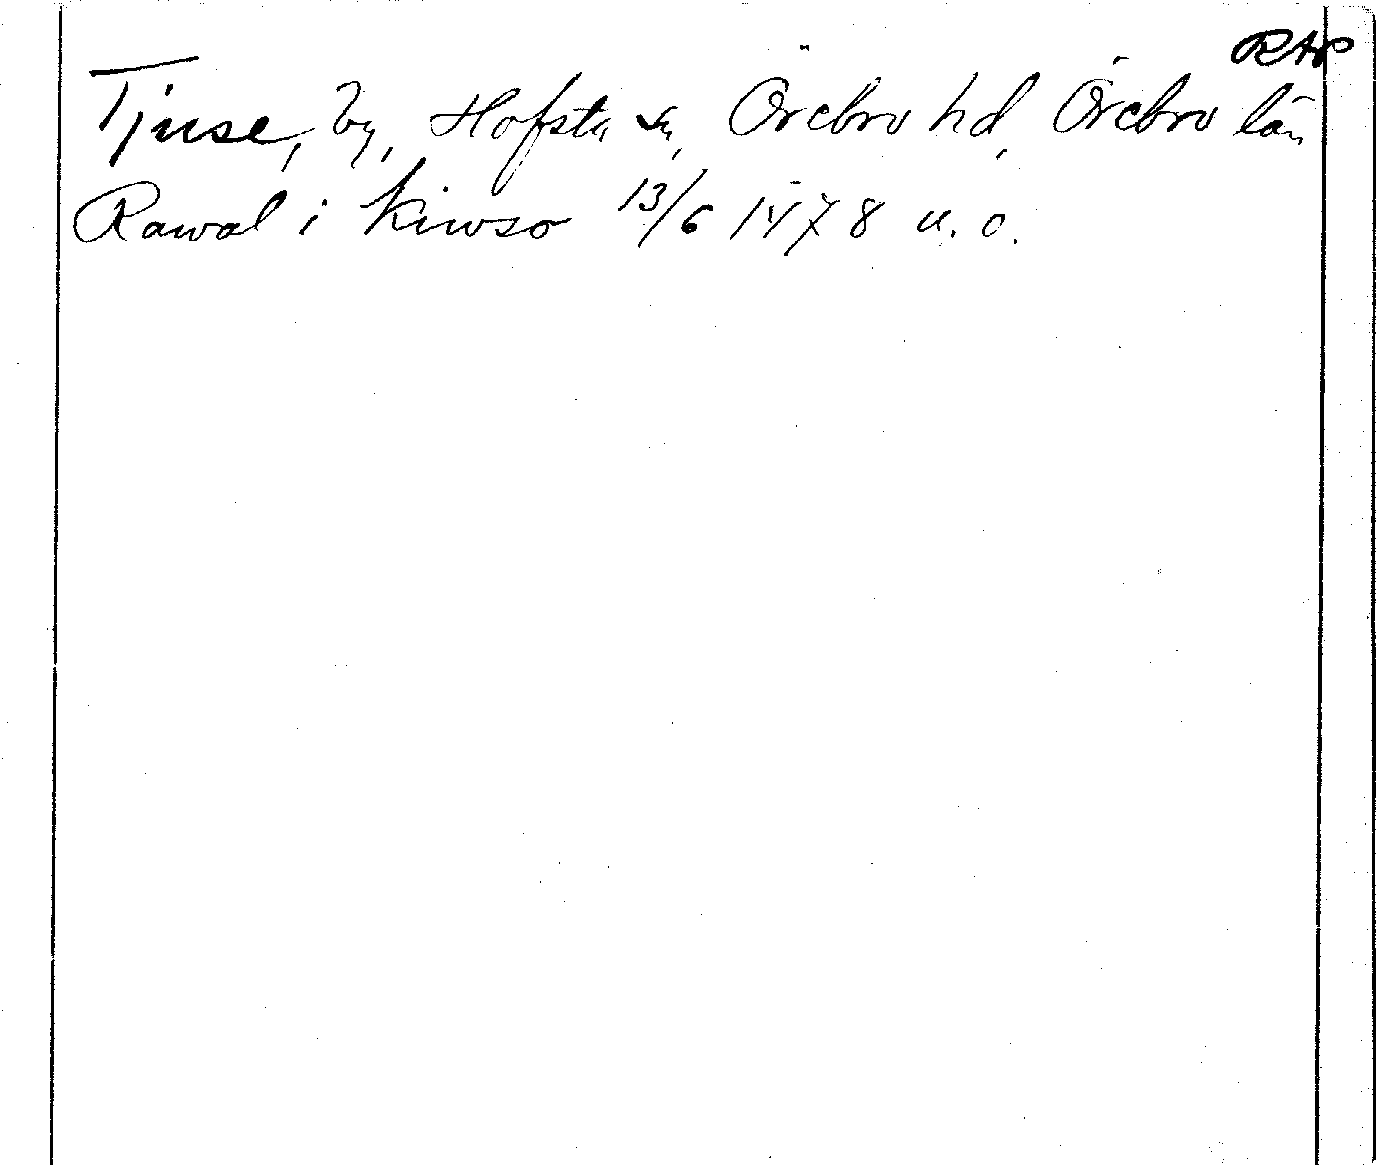 RAP
Tjuse, by, Hofsta sn, Örebro hd, Örebro län
Rawal i Kiwso 13/6 1478 u. o.